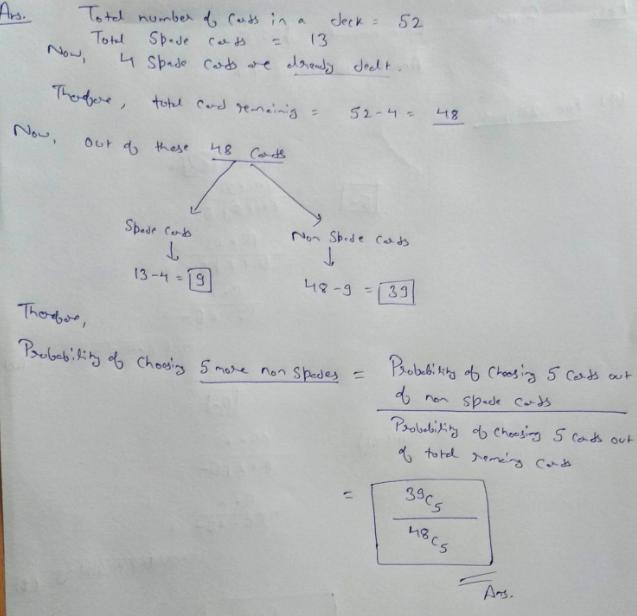 Ans. Total number of Cards in a deck = 52
Total Spade cards = 13
Now, 4 Spade Cards are already dealt.
Therefore, total card remaining = 52-4 = 48
Now, out of these 48 Cards
Spade cards Non Spade cards
↓ ↓
13-4 = 9 48-9 = 39
Therefore,
Probability of Choosing 5 more non Spades = Probability of Choosing 5 Cards out
of non spade cards
Probability of Choosing 5 Cards out
of total remaing cards
= 39C5
48C5
Ans.